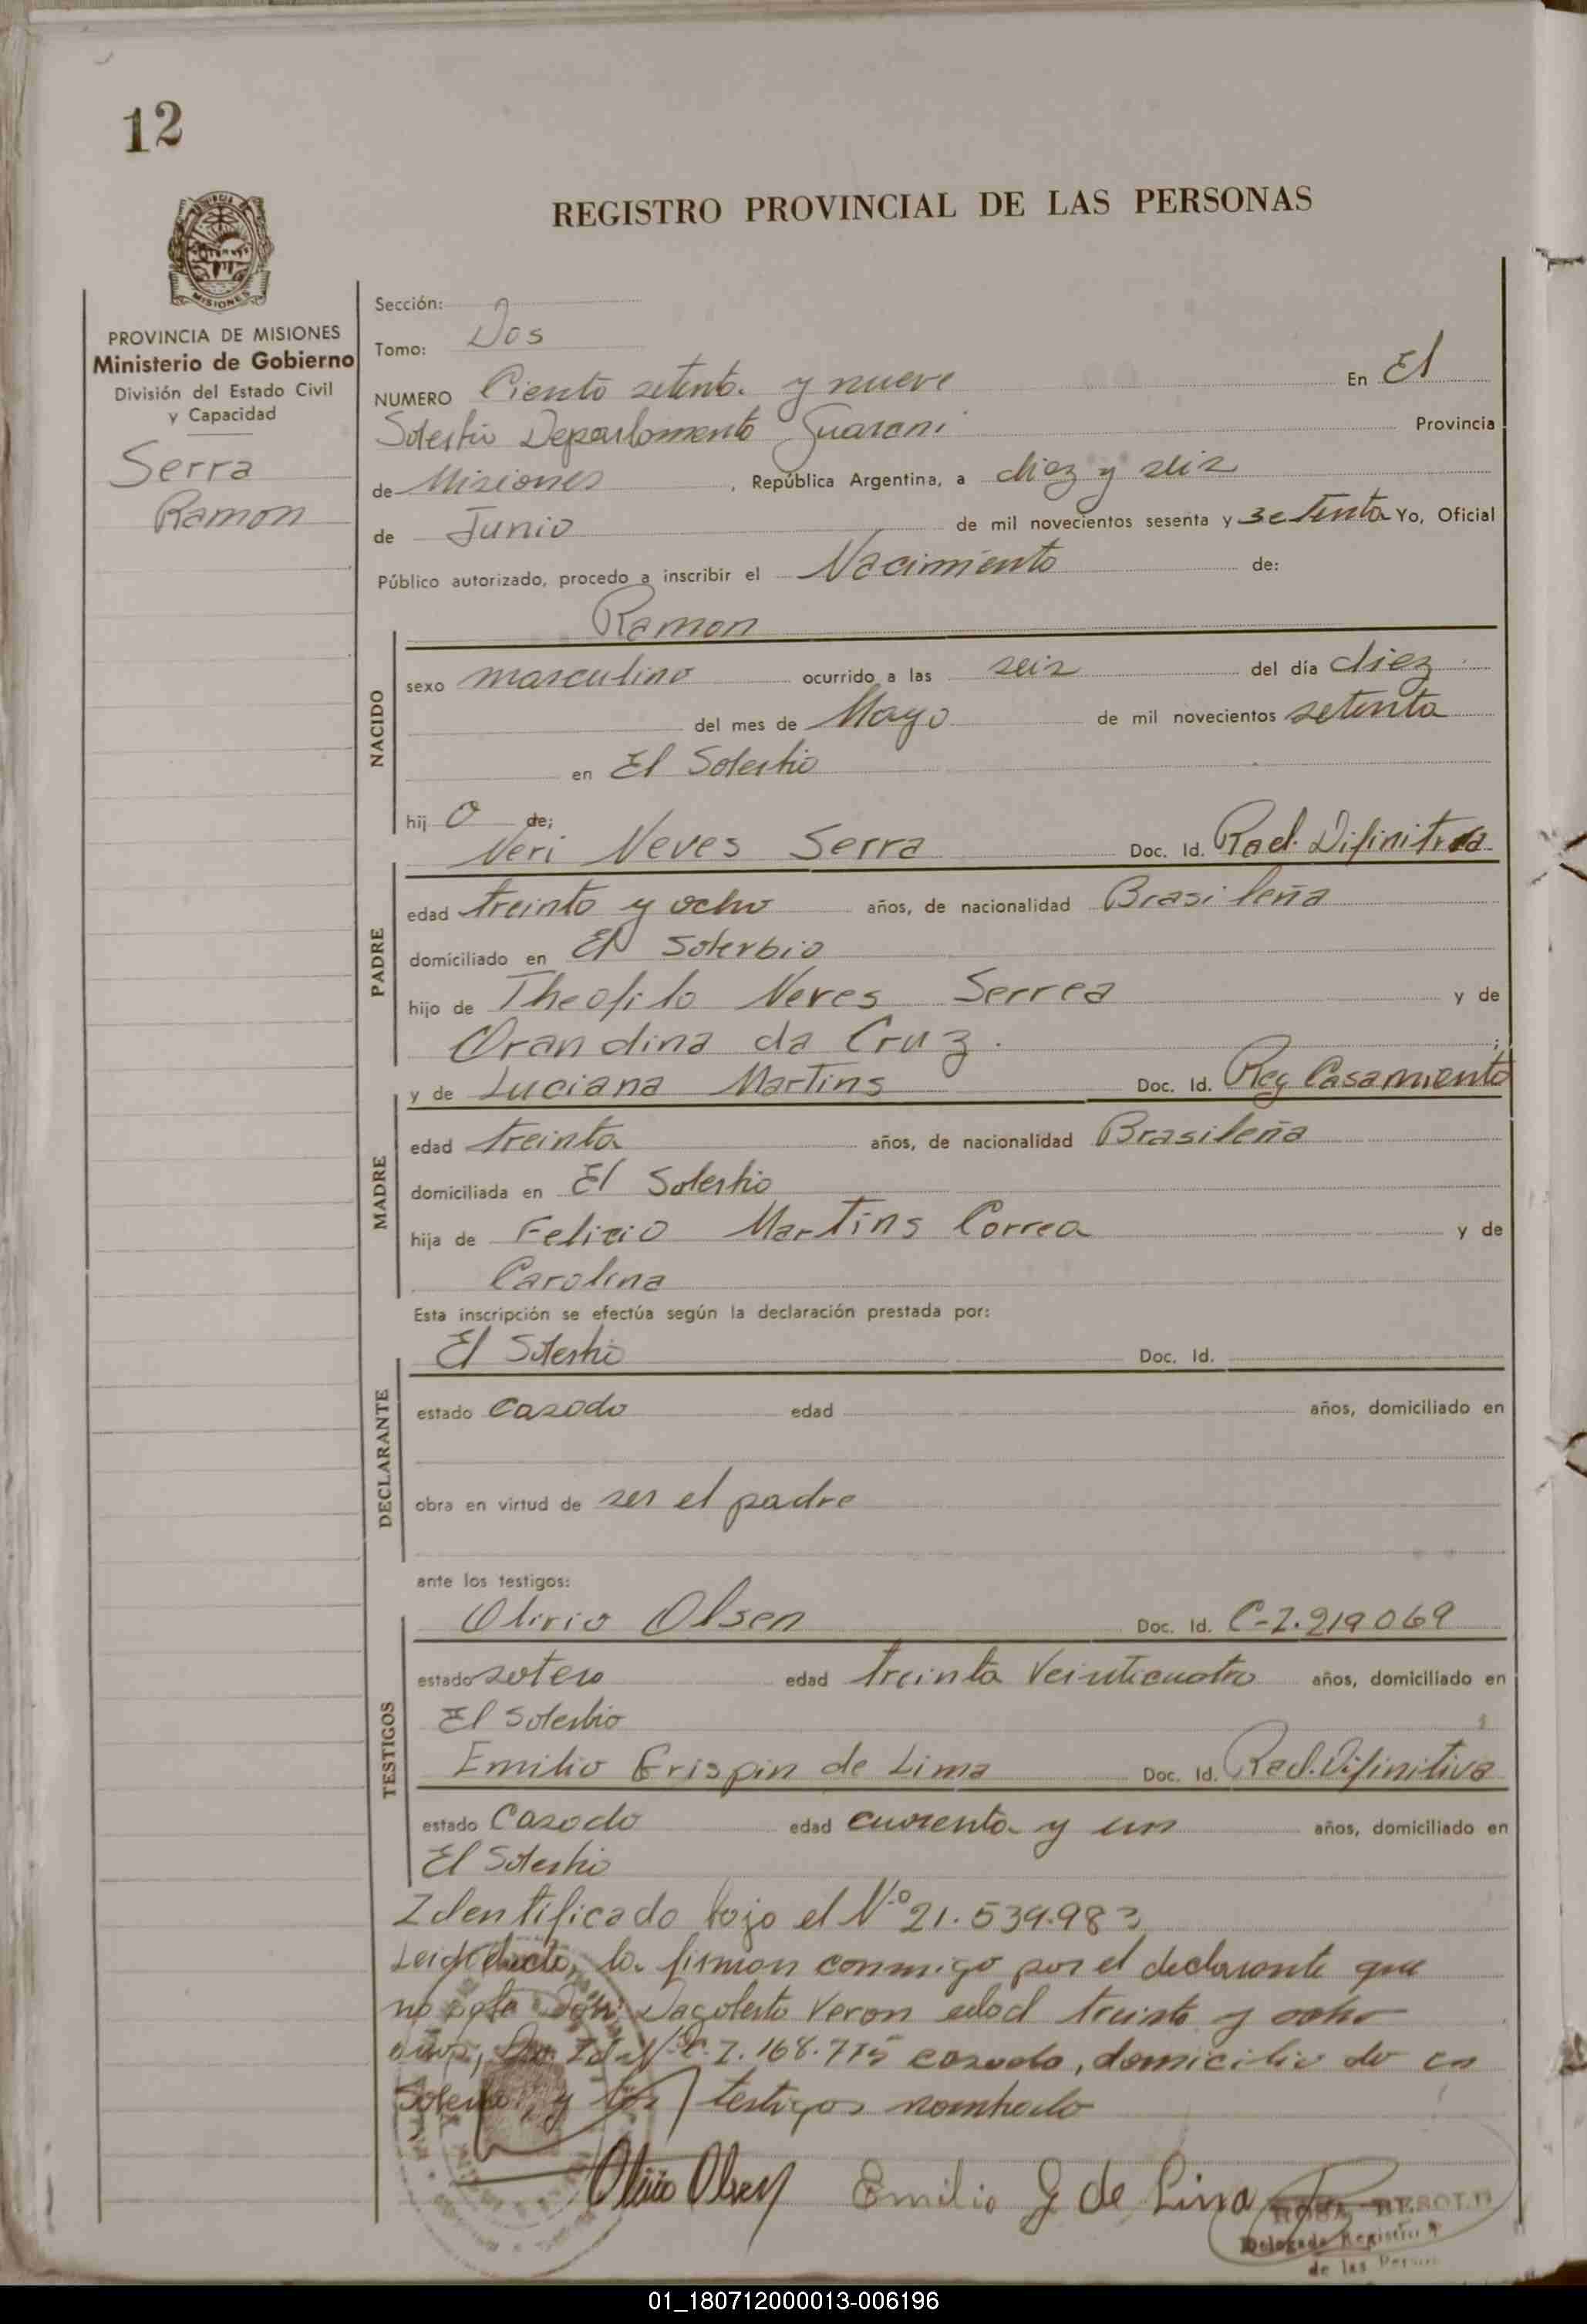 12
REGISTRO PROVINCIAL DE LAS PERSONAS
MISIONES
PROVINCIA DE MISIONES
Ministerio de Gobierno
División del Estado Civil
y Capacidad
Serra
Ramon
Sección:
Tomo: Dos
NUMERO Ciento setenta y nueve En El
Soberbio Departamento Guarani Provincia
de Misiones, República Argentina, a diez y seis
de Junio de mil novecientos sesenta y setenta Yo, Oficial
Público autorizado, procedo a inscribir el Nacimiento de:
Ramon
NACIDO
sexo masculino ocurrido a las seis del día diez
del mes de Mayo de mil novecientos setenta
en El Soberbio
hij o de;
Neri Neves Serra Doc. Id. Rad. Difinitiva
PADRE
edad treinta y ocho años, de nacionalidad Brasileña
domiciliado en El Soberbio
hijo de Theofilo Neves Serrea y de
Orandina da Cruz.;
y de Luciana Martins Doc. Id. Reg Casamiento
MADRE
edad treinta años, de nacionalidad Brasileña
domiciliada en El Soberbio
hija de Felicio Martins Correa y de
Carolina
Esta inscripción se efectúa según la declaración prestada por:
El Soberbio Doc. Id.
DECLARANTE
estado casado edad años, domiciliado en
obra en virtud de ser el padre
ante los testigos:
Olirio Olsen Doc. Id. C-I.219069
TESTIGOS
estado soltero edad treinta Veinticuatro años, domiciliado en
El Soberbio
Emilio Crispin de Lima Doc. Id. Rad. Difinitiva
estado Casado edad cuarenta y un años, domiciliado en
El Soberbio
Identificado bajo el Nº 21.539.983
Leida el acta, la firman conmigo por el declarante que
no sabe Dagoberto Veron edad treinta y ocho
años, C.I. 168.715 casado, domicilio do en
Soberbio, y los testigos nombrado
Olirio Olsen Emilio G de Lima
ROSA BESOLD
Delegada Registro P
de las Person
01_180712000013-006196